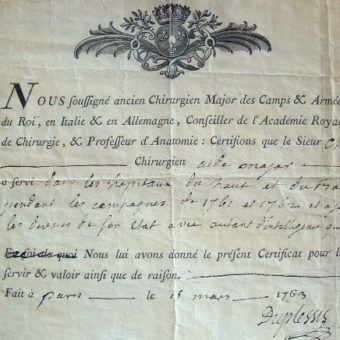 NOUS soussigné ancien Chirurgien Major des Camps & Armée
du Roi, en Italie & en Allemagne, Conseiller de l'Académie Royal
de Chirurgie, & Professeur d'Anatomie : Certifions que le Sieur
Chirurgien aide major
a servi dans les hopitaux du haut et du Ba
pendant les campagnes de 1761 et 1762 et a
les devoirs de son Etat avec autant d'intelligence que
En foi de quoi Nous lui avons donné le présent Certificat pour l
servir & valoir ainsi que de raison.
Fait à paris le 15 mars 1763
Duplessis